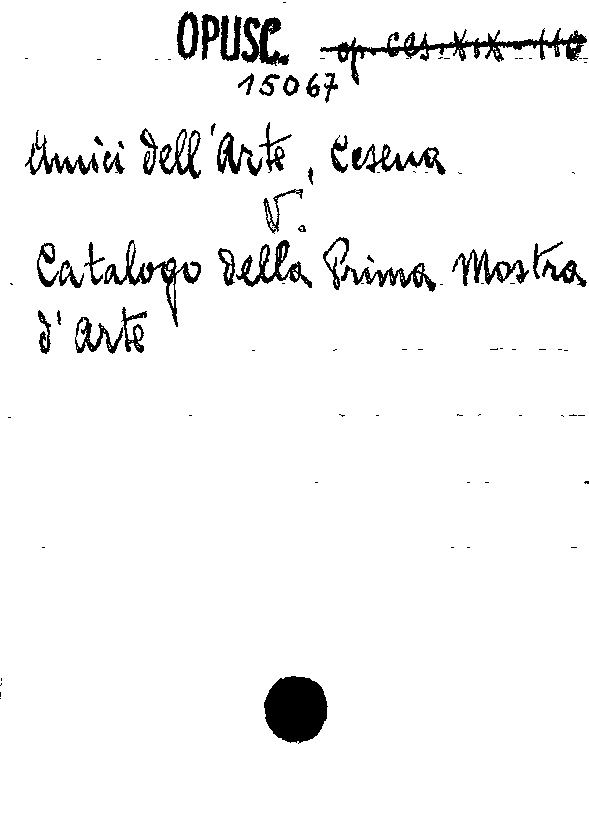 OPUSC. op. Ces. XIX - 110
15067
Amici dell'Arte, Cesena
V.
Catalogo della Prima Mostra
d'arte